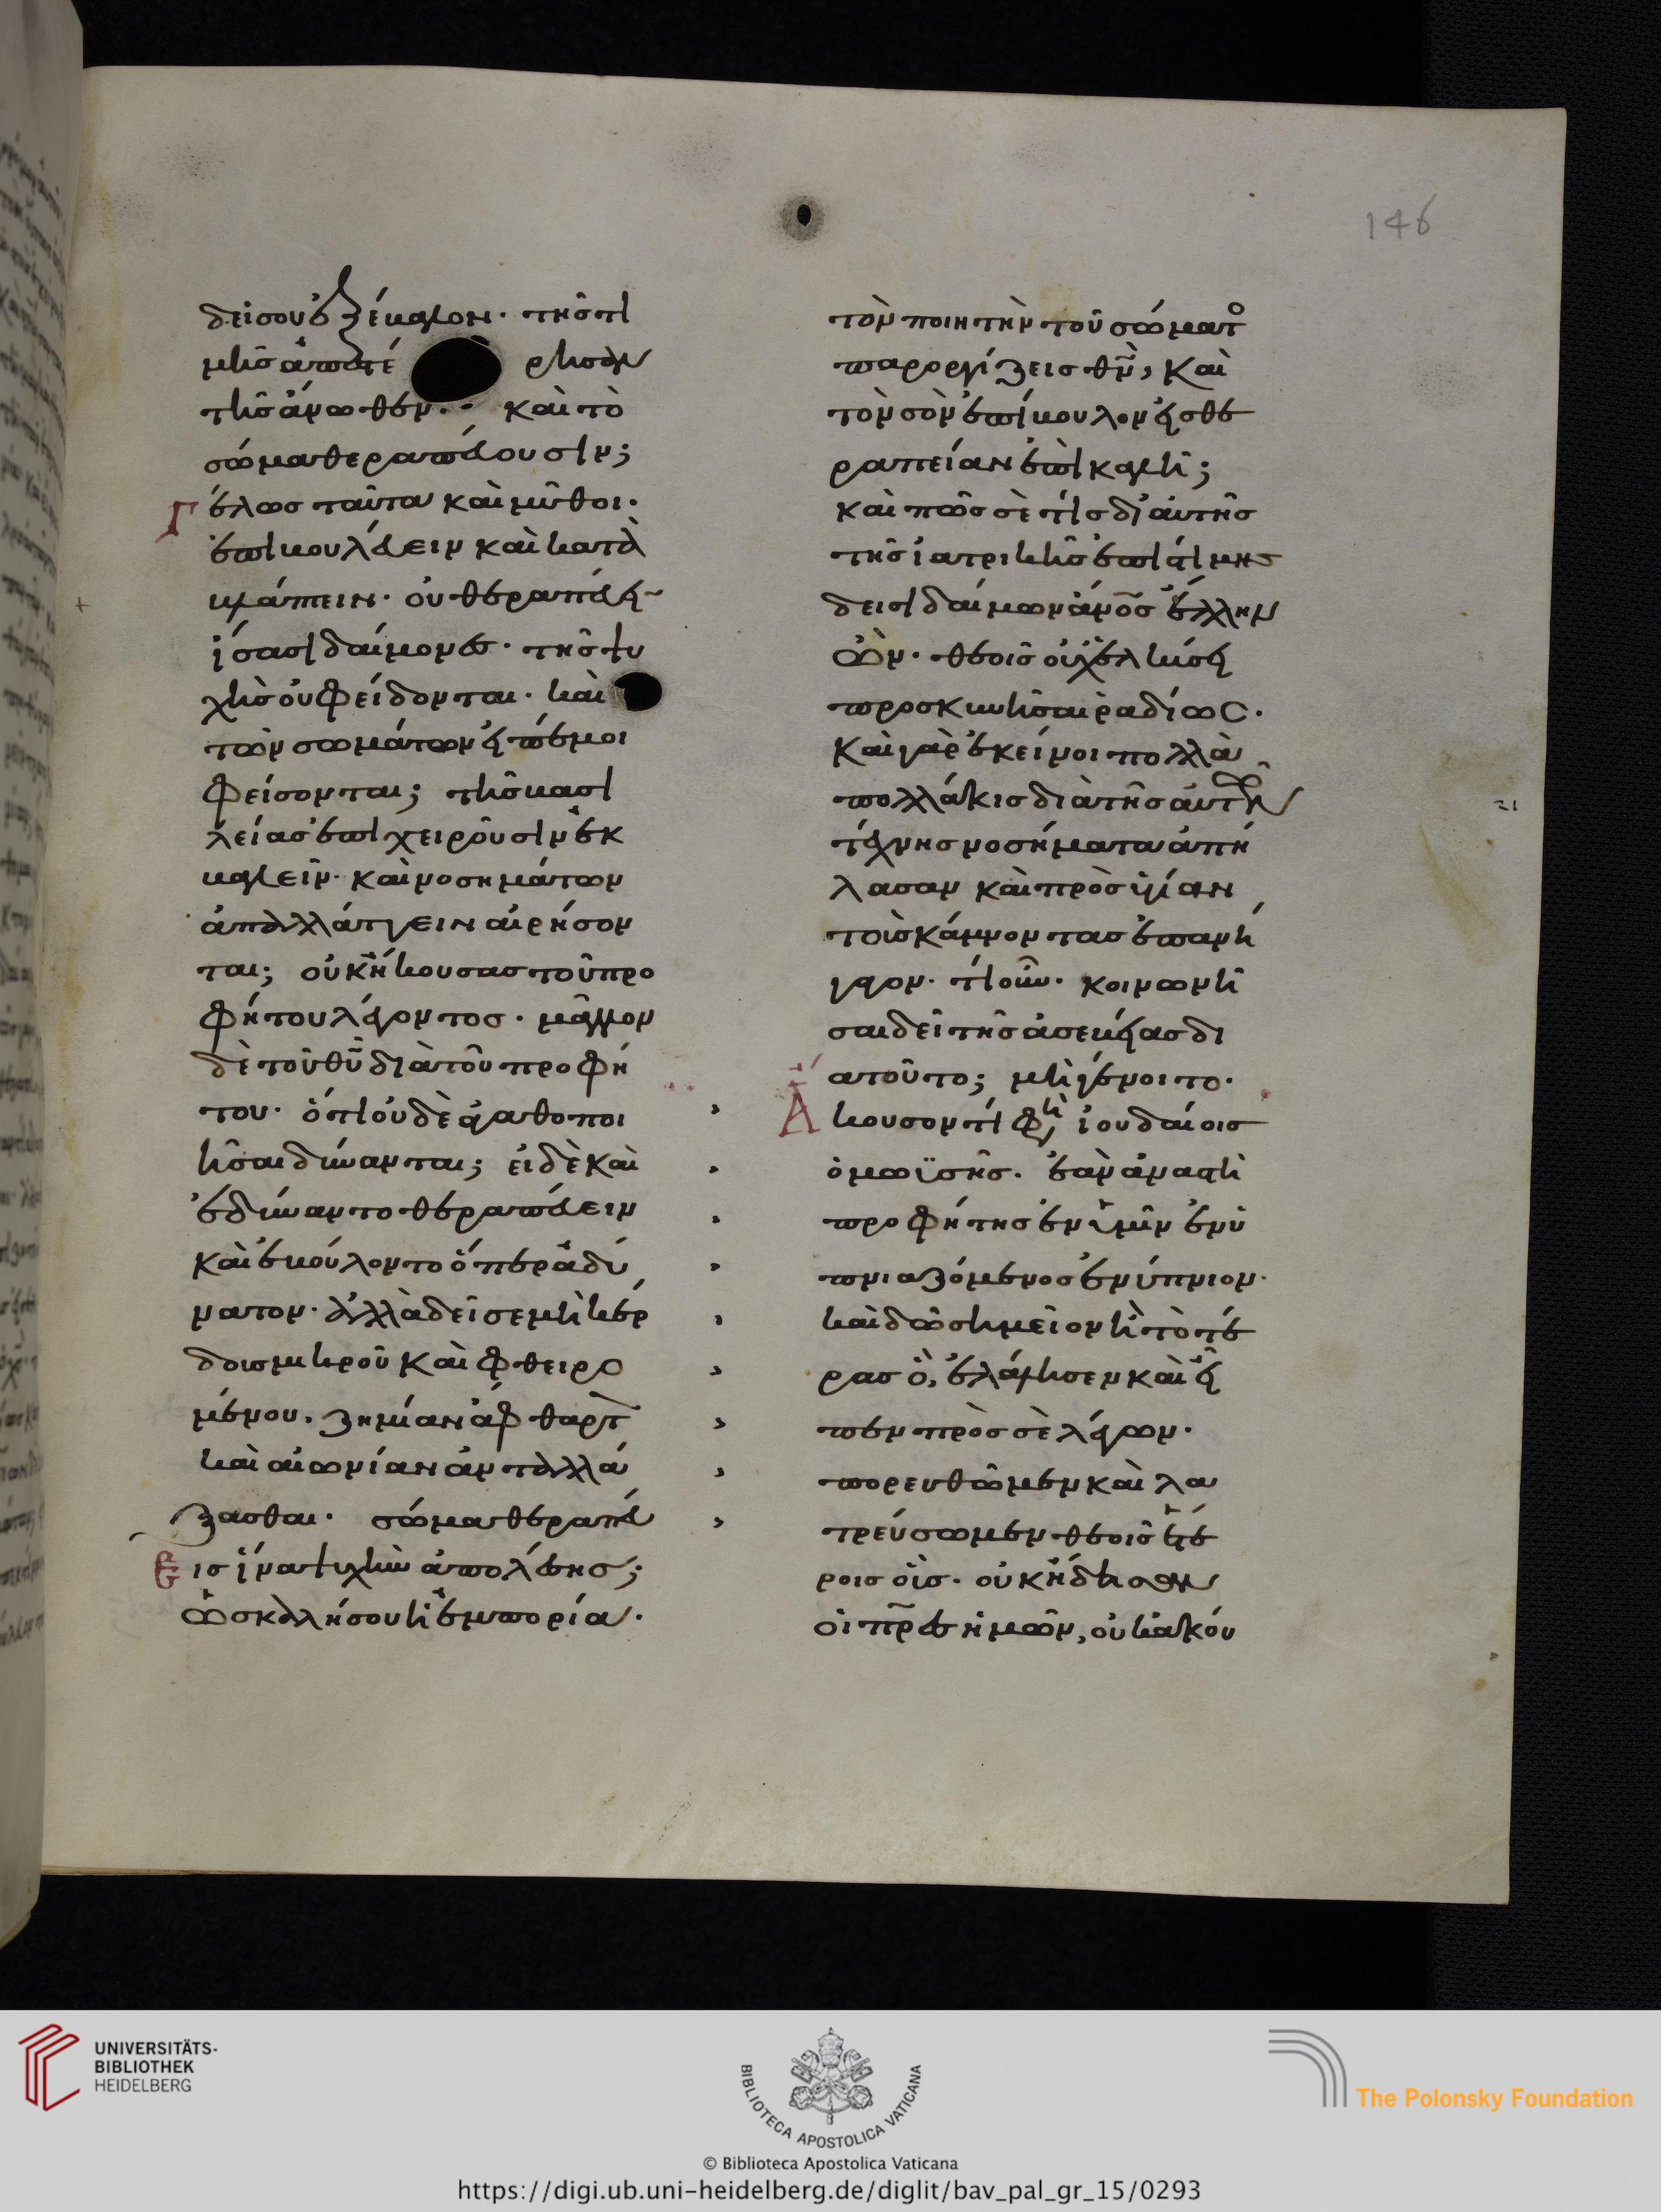 δείσου ἐξέβαλον· τῆς τι
μῆς ἀπεστέρησαν
τῆς ἄνωθεν· καὶ τὸ
σῶμα θεραπεύουσιν;
Γέλως ταῦτα καὶ μῦθοι·
ἐπιβουλεύειν καὶ κατα
βλάπτειν· οὐ θεραπεύειν
ἴσασι δαίμονες· τῆς ψυ
χῆς οὐ φείδονται· καὶ
τῶν σωμάτων εἰπέ μοι
φείσονται; τῆς βασι
λείας ἐπιχειροῦσιν ἐκ
βαλεῖν· καὶ νοσημάτων
ἀπαλλάττειν αἱρήσον
ται; οὐκ ἤκουσας τοῦ προ
φήτου λέγοντος· μᾶλλον
δὲ τοῦ θῦ διὰ τοῦ προφή
του· ὅτι οὐδὲ ἀγαθοποι
ῆσαι δύνανται; εἰ δὲ καὶ
ἐδύναντο θεραπεύειν
καὶ ἐβούλοντο ὅπερ ἀδύ
νατον· ἀλλὰ δεῖ σε μὴ κέρ
δοις μικροῦ καὶ φθειρο
μένου, ζημίαν ἄφθαρτ
καὶ αἰωνίαν ἀνταλλά
ξασθαι· σῶμα θεραπεύ
εις ἵνα ψυχὴν ἀπολέσης;
ὡς καλή σου ἡ ἐμπορία·
146
τὸν ποιητὴν τοῦ σώματ
παροργίζεις θν, καὶ
τὸν σὸν ἐπίβουλον εἰς θε
ραπείαν ἐπικαλῆ;
καὶ πῶς σέ τις δι' αὐτῆς
τῆς ἰατρικῆς ἐπιστήμης
δεισιδαίμων ἀνος ἕλλην
ὢν· θεοῖς οὐχ ἑλκύσει
προσκυνῆσαι ραδίως·
Καὶ γὰρ ἐκείνοι πολλὰ
πολλάκις διὰ τῆς αὐτῶν
τέχνης νοσήματα ἀπή
λασαν καὶ πρὸς ὑγίειαν
τοὺς κάμνοντας ἐπανή
γαγον· τί οὖν· κοινωνῆ
σαι δεῖ τῆς ἀσεβείας δι
ὰ τοῦτο; μὴ γένοιτο·
Ἄκουσον τί φη ἰουδαίοις
ὁ μωϋσῆς. ἐὰν ἀναστῆ
προφήτης ἐν ὑμῖν ἐνυ
πνιαζόμενος ἐνύπνιον·
καὶ δῶ σημεῖον ἢ τὸ τέ
ρας ὃ, ἐλάλησεν καὶ εἶ
πεν πρὸς σὲ λέγων·
πορευθῶμεν καὶ λα
τρεύσωμεν θεοῖς ἑτέ
ροις οἷς· οὐκ ἤδησαν
οἱ πρες ἡμῶν, οὐκ ἀκού
UNIVERSITÄTS-
BIBLIOTHEK
HEIDELBERG
BIBLIOTECA APOSTOLICA VATICANA
The Polonsky Foundation
© Biblioteca Apostolica Vaticana
https://digi.ub.uni-heidelberg.de/diglit/bav_pal_gr_15/0293